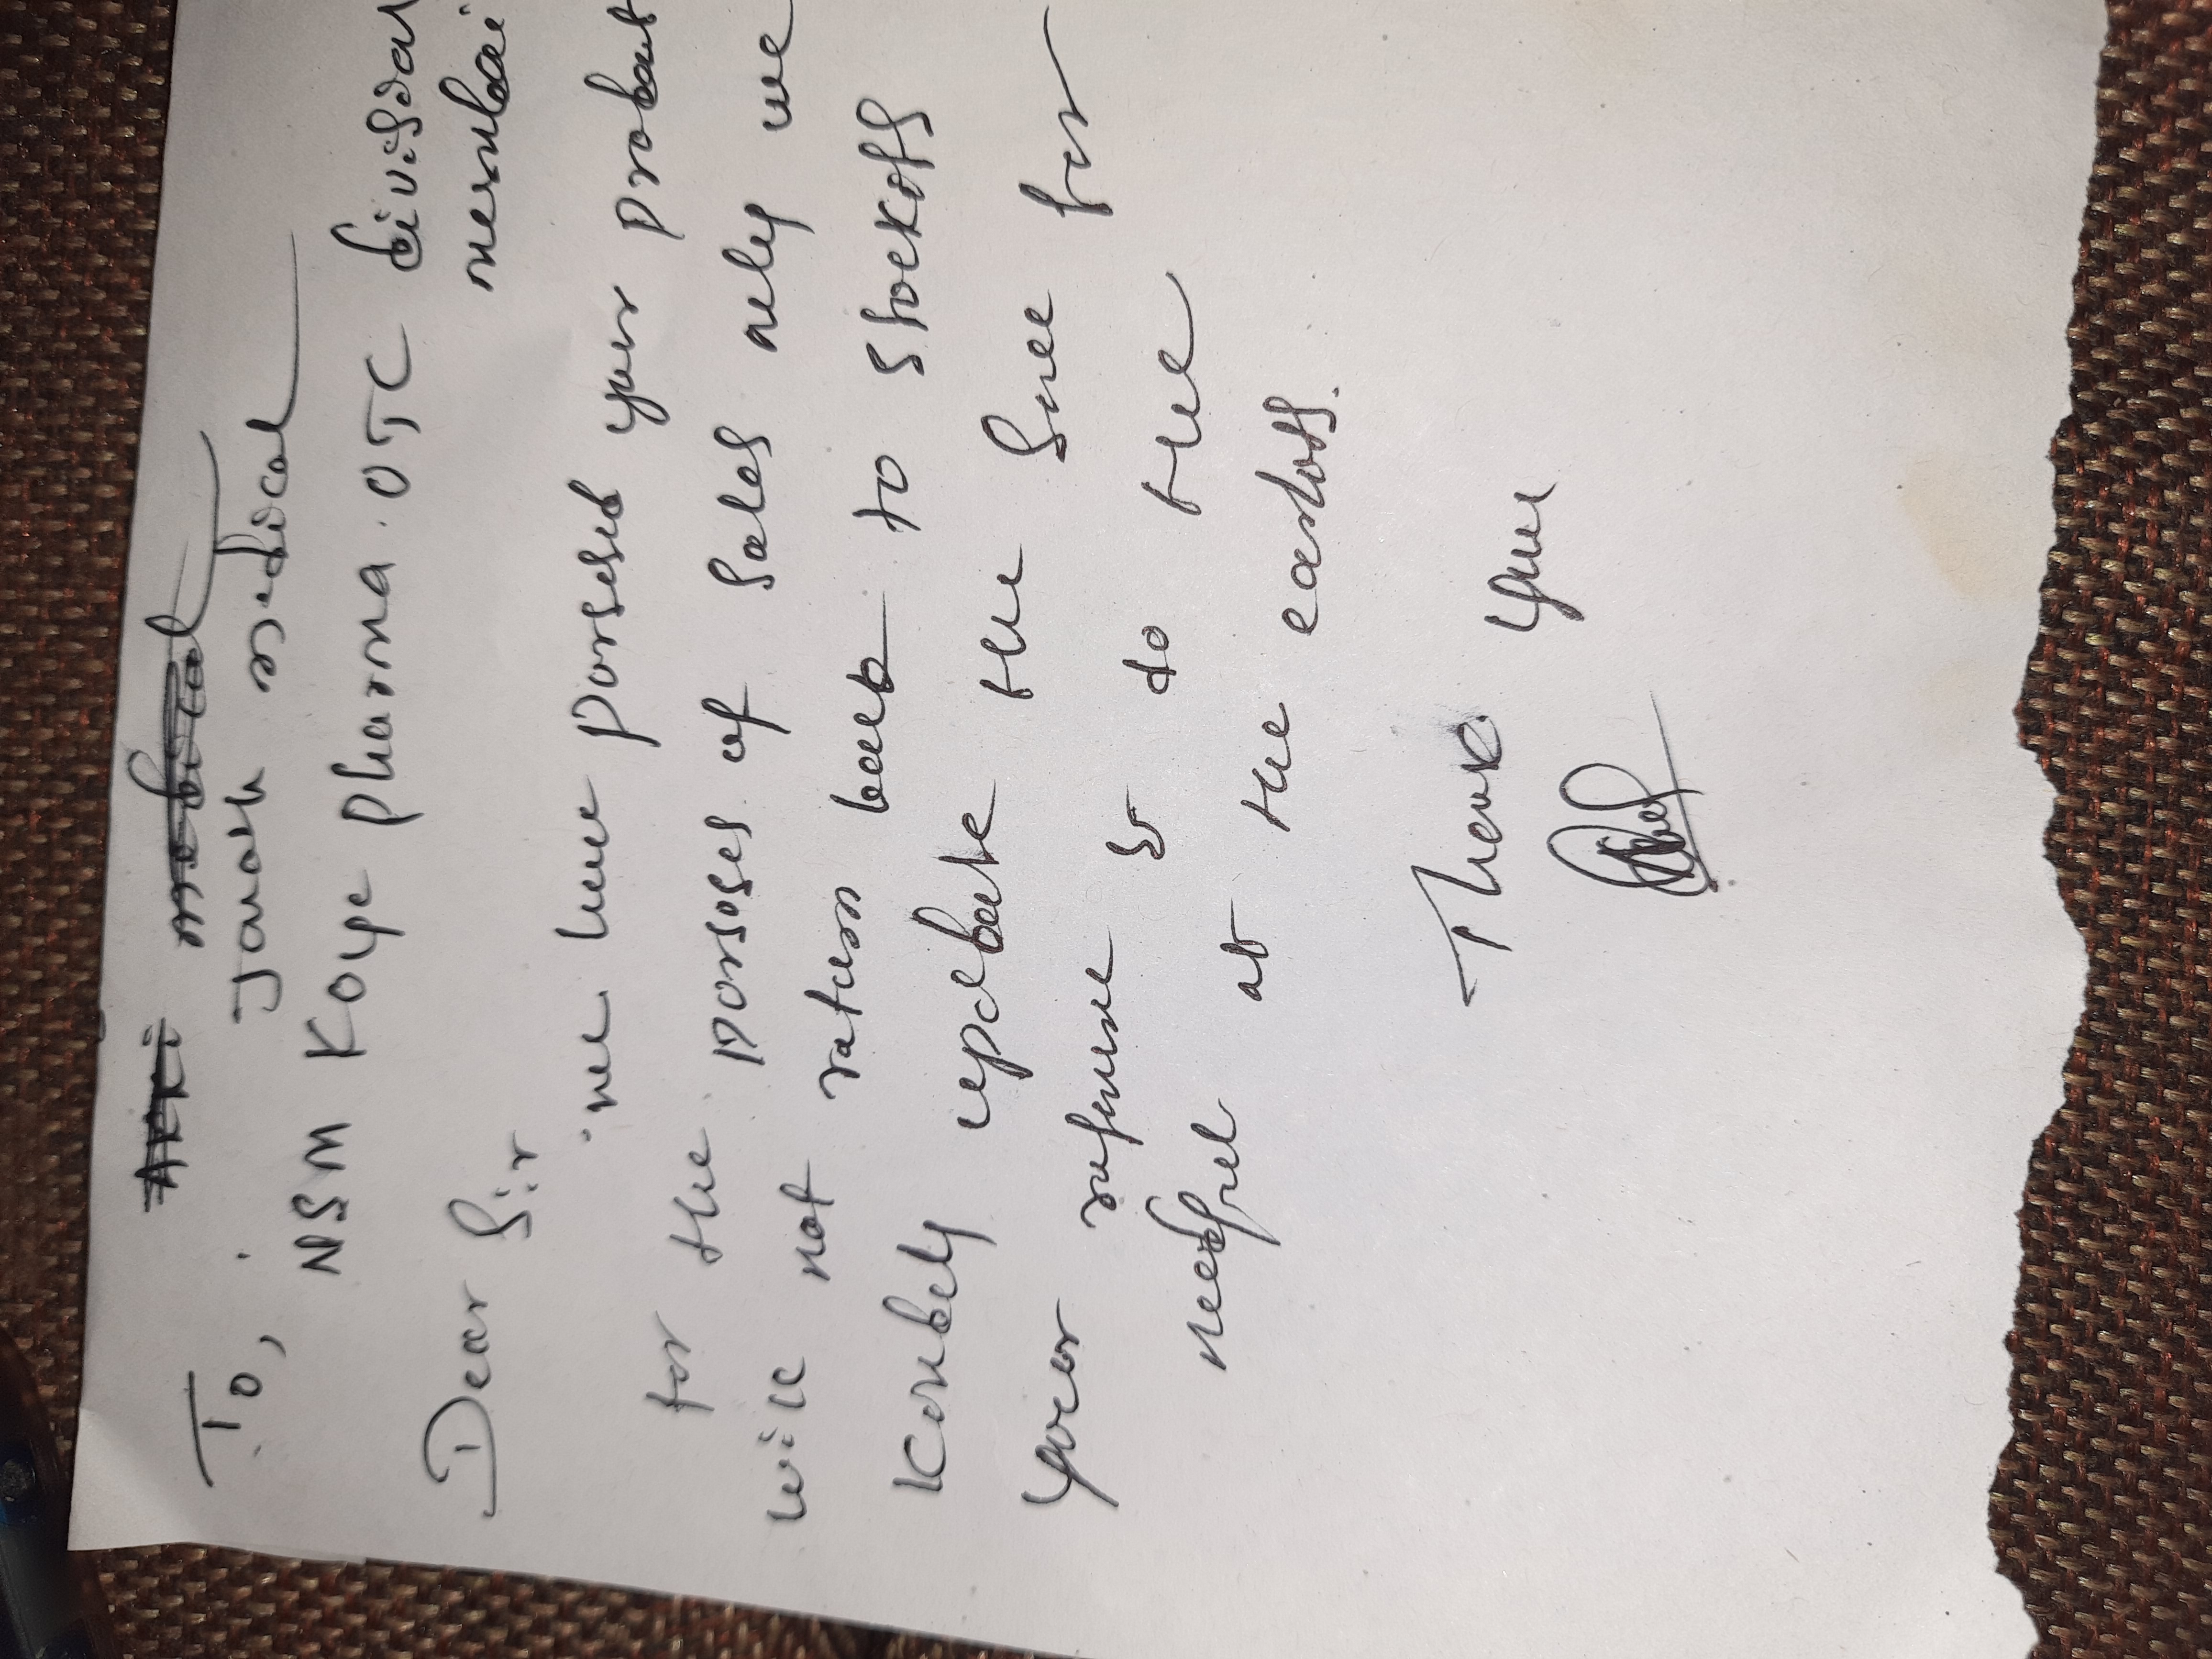 To,
Janak medical
NSM Koye pharma. OTC division
mumbai
Dear Sir
we have porsesed your probat
for the porses of sales only we
will not return back to stockess
Konbely update the same for
your refrence & do the
needful at the earloss.
Thank you